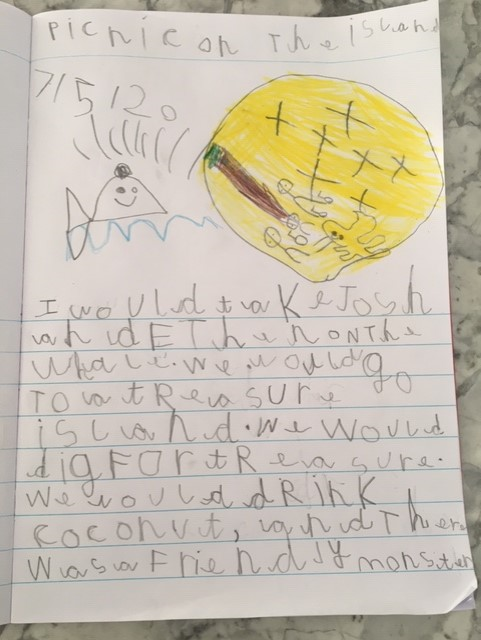 Picnic on the island
7/5/20
I would take Josh
and Ethen on the
whale. we would go
To a tReasure
island. we would
dig FoR tReasure.
we would dRink
coconut, and Ther
was a Friendly monster